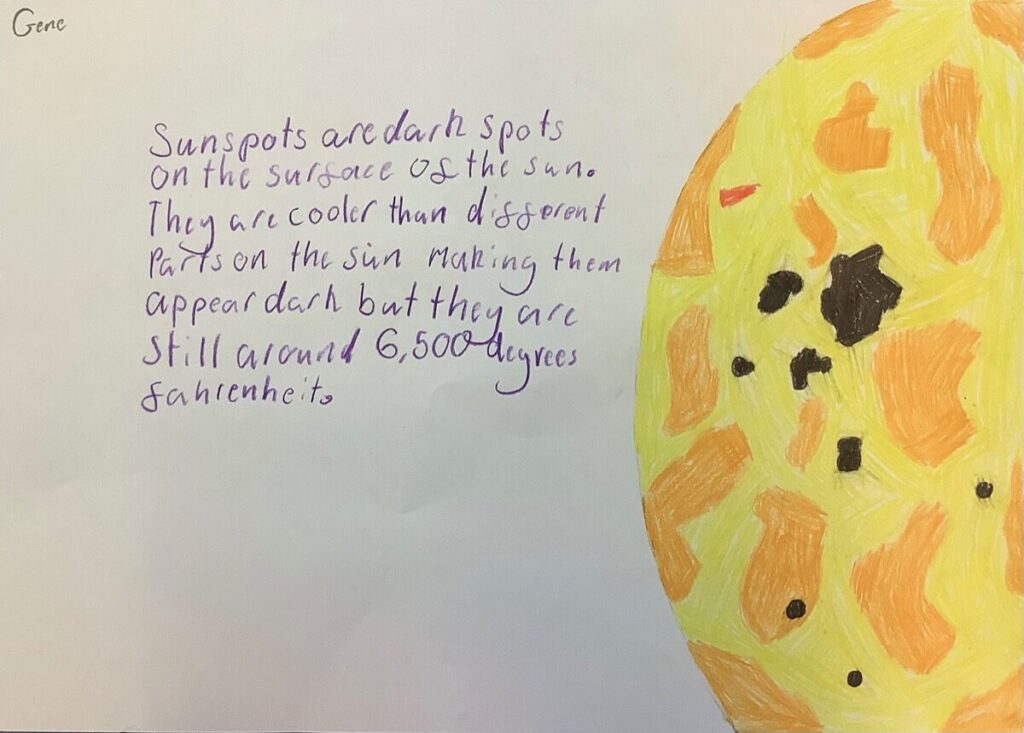 Gene
Sunspots are dark spots
on the surface of the sun.
They are cooler than different
Parts on the sun making them
appear dark but they are
Still around 6,500 degrees
fahrenheit.